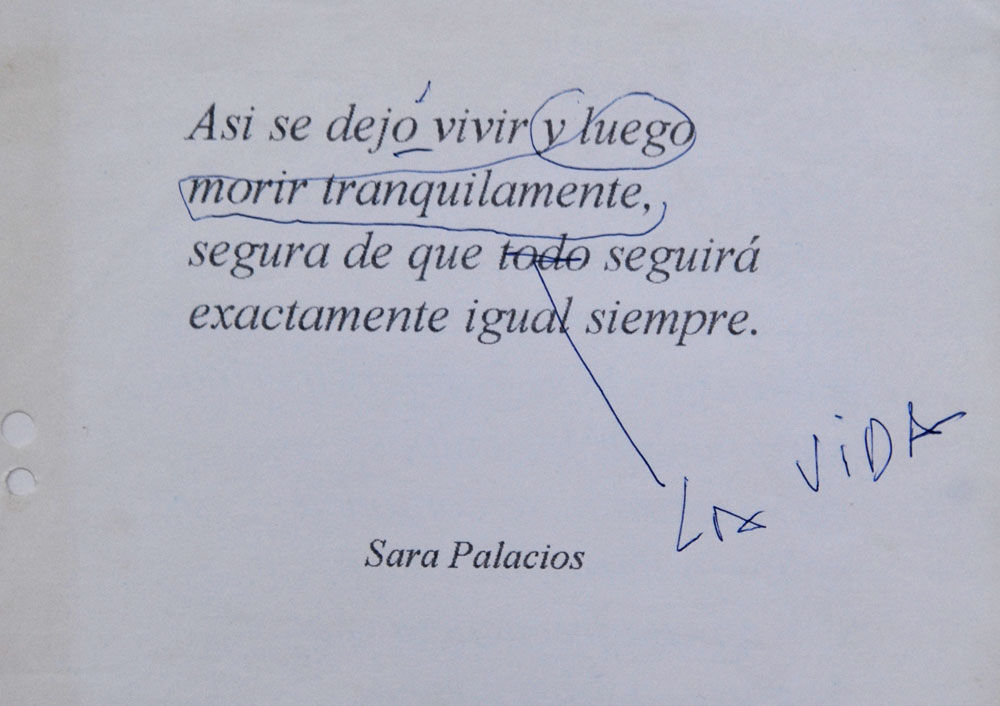 Asi se dejo vivir y luego
morir tranquilamente,
segura de que todo seguirá
exactamente igual siempre.
LA VIDA
Sara Palacios